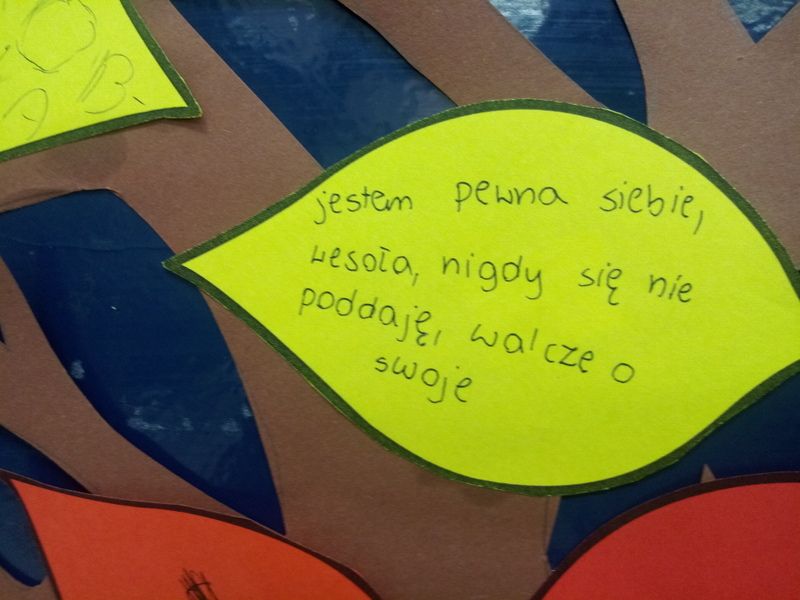 jestem pewna siebie,
wesoła, nigdy się nie
poddaję, walczę o
swoje